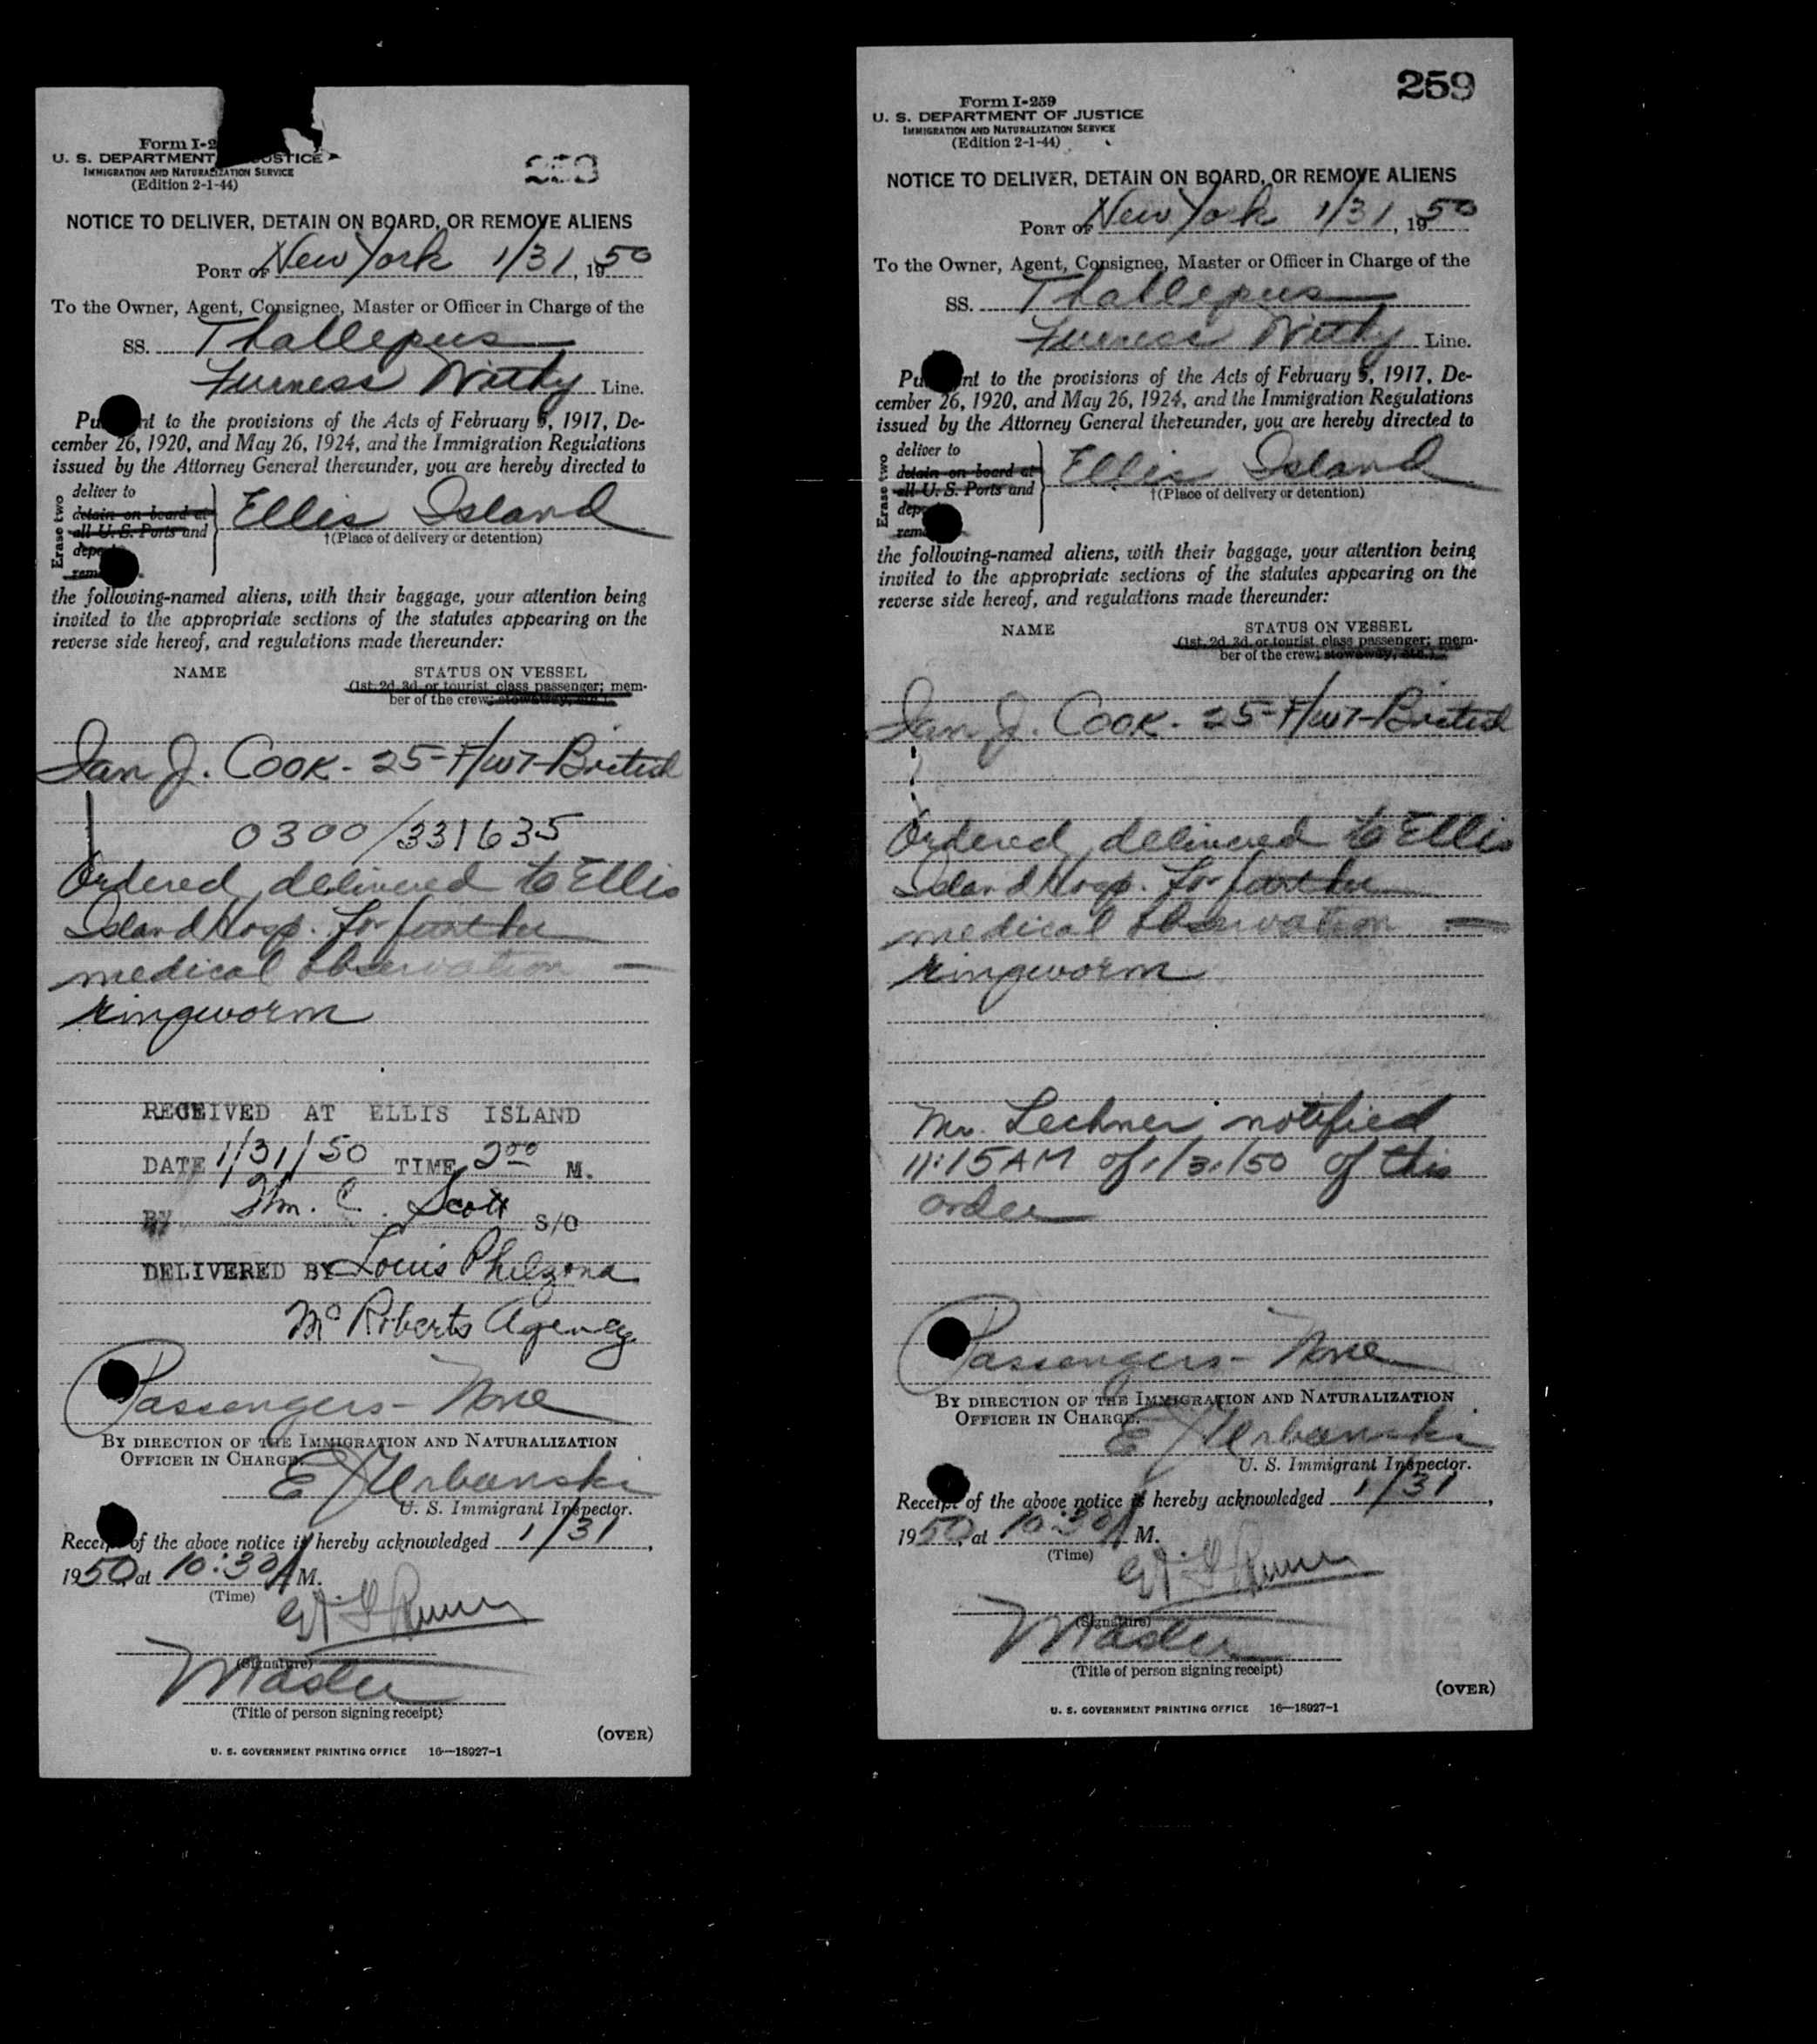 Form I-2
U. S. DEPARTMENT JUSTICE
IMMIGRATION AND NATURALIZATION SERVICE
(Edition 2-1-44)
259
NOTICE TO DELIVER, DETAIN ON BOARD, OR REMOVE ALIENS
PORT OF New York 1/31, 1950
To the Owner, Agent, Consignee, Master or Officer in Charge of the
SS. Thallepus
Furness Withy Line.
Pu nt to the provisions of the Acts of February 5, 1917, De-
cember 26, 1920, and May 26, 1924, and the Immigration Regulations
issued by the Attorney General thereunder, you are hereby directed to
Erase two
deliver to
detain on board at
all U. S. Ports and
depo
rem
Ellis Island
†(Place of delivery or detention)
the following-named aliens, with their baggage, your attention being
invited to the appropriate sections of the statutes appearing on the
reverse side hereof, and regulations made thereunder:
NAME STATUS ON VESSEL
(1st, 2d, 3d, or tourist class passenger; mem-
ber of the crew; stowaway, etc.)
Ian J. Cook - 25 - F/WT - British
0300/331635
Ordered delivered to Ellis
Island Hosp. for further
medical observation —
ringworm
RECEIVED AT ELLIS ISLAND
DATE 1/31/50 TIME 2 00 M.
BY Wm. C. Scott S/O
DELIVERED BY Louis
McRoberts Agency
Passengers - None
BY DIRECTION OF THE IMMIGRATION AND NATURALIZATION
OFFICER IN CHARGE.
E J Urbanski
U. S. Immigrant Inspector.
Receipt of the above notice is hereby acknowledged 1/31,
1950, at 10:30 A M.
(Time)
(Signature)
Master
(Title of person signing receipt)
(OVER)
U. S. GOVERNMENT PRINTING OFFICE 16—18927-1
259
Form I-259
U. S. DEPARTMENT OF JUSTICE
IMMIGRATION AND NATURALIZATION SERVICE
(Edition 2-1-44)
NOTICE TO DELIVER, DETAIN ON BOARD, OR REMOVE ALIENS
PORT OF New York 1/31, 1950
To the Owner, Agent, Consignee, Master or Officer in Charge of the
SS. Thallepus
Furness Withy Line.
Pu nt to the provisions of the Acts of February 5, 1917, De-
cember 26, 1920, and May 26, 1924, and the Immigration Regulations
issued by the Attorney General thereunder, you are hereby directed to
Erase two
deliver to
detain on board at
all U. S. Ports and
dep
rem
Ellis Island
†(Place of delivery or detention)
the following-named aliens, with their baggage, your attention being
invited to the appropriate sections of the statutes appearing on the
reverse side hereof, and regulations made thereunder:
NAME STATUS ON VESSEL
(1st, 2d, 3d, or tourist class passenger; mem-
ber of the crew; stowaway, etc.)
Ian J. Cook - 25 - F/WT - British
Ordered delivered to Ellis
Island Hosp. for further
medical observation —
ringworm
Mr. Lechner notified
11:15 AM of 1/31/50 of this
order
Passengers - None
BY DIRECTION OF THE IMMIGRATION AND NATURALIZATION
OFFICER IN CHARGE.
E J Urbanski
U. S. Immigrant Inspector.
Receipt of the above notice is hereby acknowledged 1/31,
1950, at 10:30 A M.
(Time)
(Signature)
Master
(Title of person signing receipt)
(OVER)
U. S. GOVERNMENT PRINTING OFFICE 16—18927-1